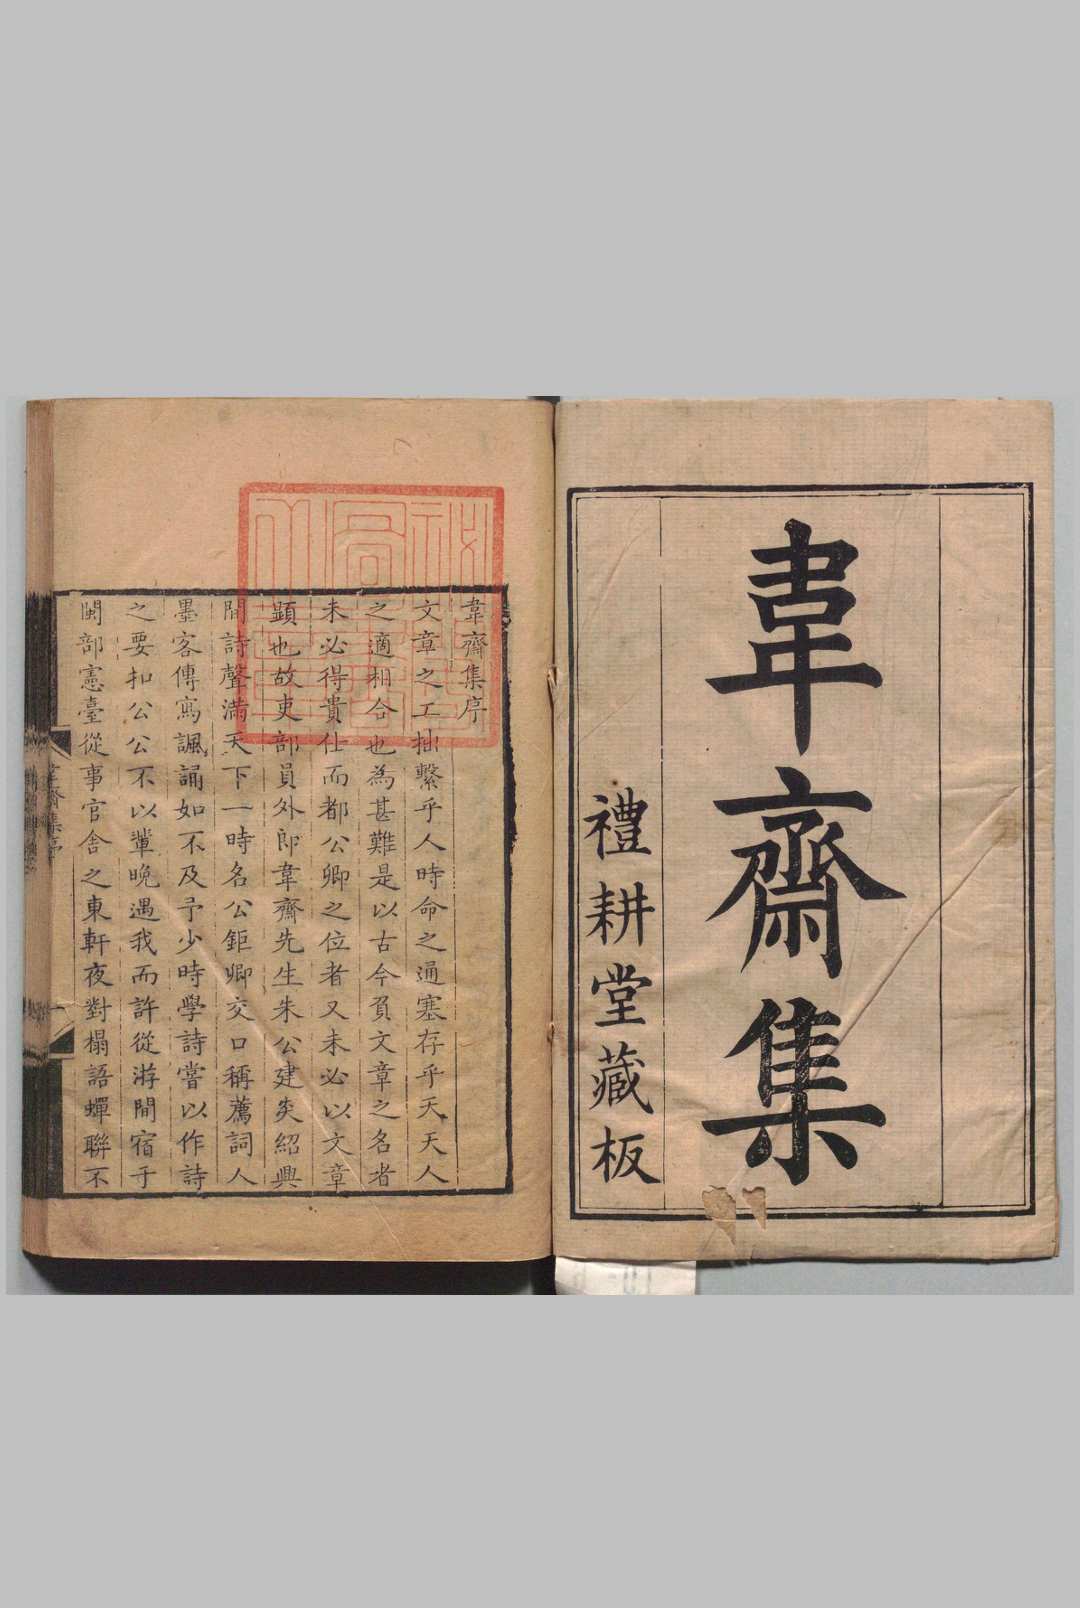 韋齋集
禮耕堂藏板
韋齋集序
文章之工拙繫乎人時命之通塞存乎天天人
之適相合也為甚難是以古今負文章之名者
未必得貴仕而都公卿之位者又未必以文章
顯也故吏部員外郎韋齋先生朱公建炎紹興
間詩聲滿天下一時名公鉅卿交口稱薦詞人
墨客傳寫諷誦如不及予少時學詩嘗以作詩
之要扣公公不以輩晚遇我而許從游間宿于
閩部憲臺從事官舍之東軒夜對榻語蟬聯不
韋齋集序
一